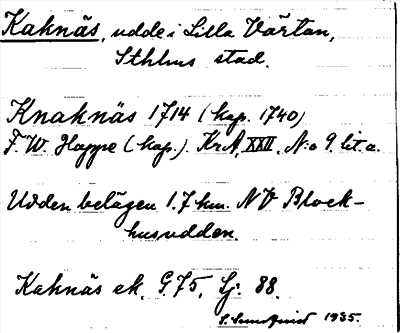 Kaknäs, udde i Lilla Värtan,
Sthlms stad.
Knaknäs 1714 (kop. 1740)
F. W. Hoppe (kop.). KrA, XXII, No 9. lit. a.
Udden belägen 1.7 km. NV Block-
husudden.
Kaknäs ek. G. 75, Lj. 88.
S. 1935.